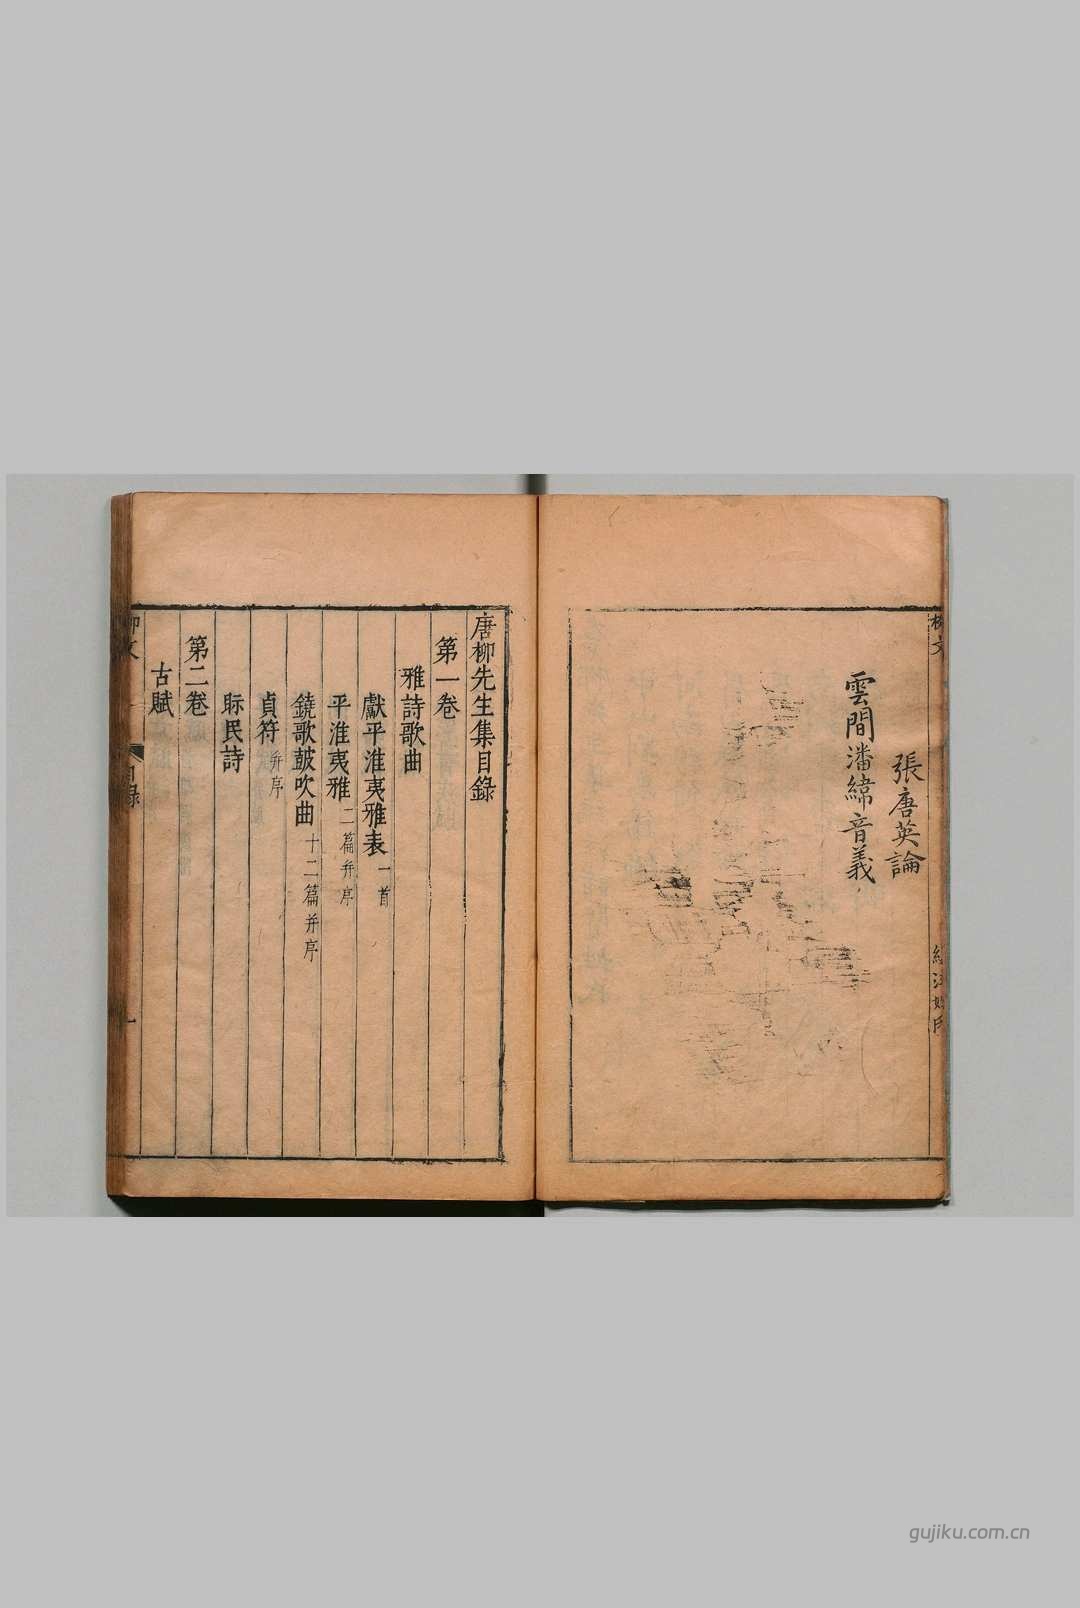 張唐英論
雲間潘緯音義
唐柳先生集目錄
第一卷
雅詩歌曲
獻平淮夷雅表一首
平淮夷雅二篇并序
鐃歌鼓吹曲十二篇并序
貞符并序
眎民詩
第二卷
古賦
柳文
目錄
一
gujiku.com.cn